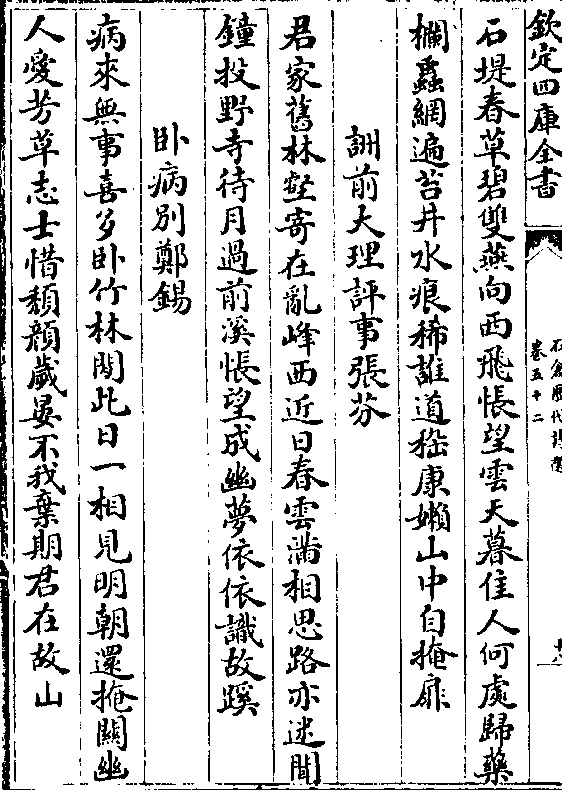 欽定四庫全書
石倉歷代詩選
卷五十二
十八
石堤春草碧雙燕向西飛悵望雲天暮佳人何處歸藥
欄蟲網遍苔井水痕稀誰道嵇康嬾山中自掩扉
詶前大理評事張芬
君家舊林壑寄在亂峰西近日春雲滿相思路亦迷聞
鐘投野寺待月過前溪悵望成幽夢依依識故蹊
卧病別鄭錫
病來無事喜多卧竹林閒此日一相見明朝還掩關幽
人愛芳草志士惜頹顏歲晏不我棄期君在故山